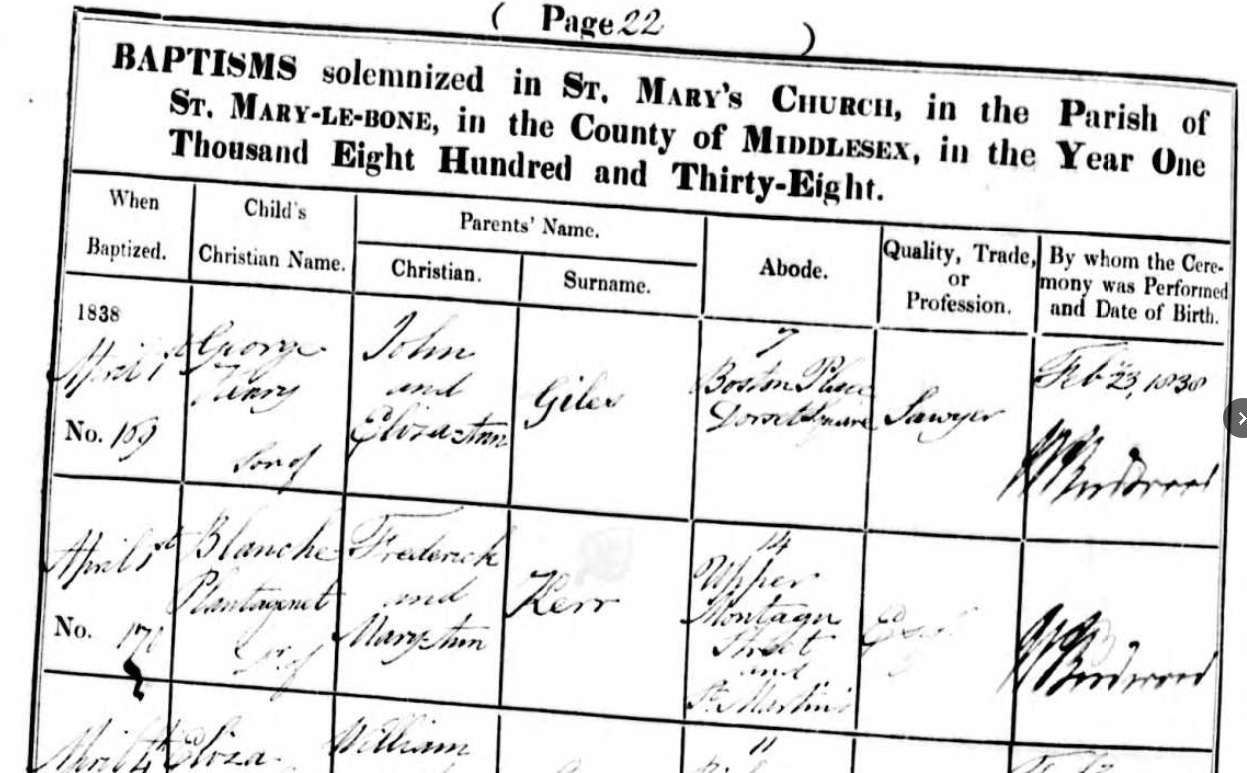 ( Page 22 )
BAPTISMS solemnized in St. Mary's Church, in the Parish of
St. Mary-le-bone, in the County of Middlesex, in the Year One
Thousand Eight Hundred and Thirty-Eight.
When
Baptized.
Child's
Christian Name.
Parents' Name.
Christian.
Surname.
Abode.
Quality, Trade,
or
Profession.
By whom the Cere-
mony was Performed
and Date of Birth.
1838
April 1st
No. 169
George
Henry
Son of
John
and
Eliza Ann
Giles
7
Boston Place
Dorset Square
Sawyer
Feb 23, 1838
April 1st
No. 170
Blanche
Plantagenet
Dr of
Frederick
and
Mary Ann
Kerr
14
Upper
Montagu
Street
and
St. Martin's
Esqr
April 4th
Eliza
William
11